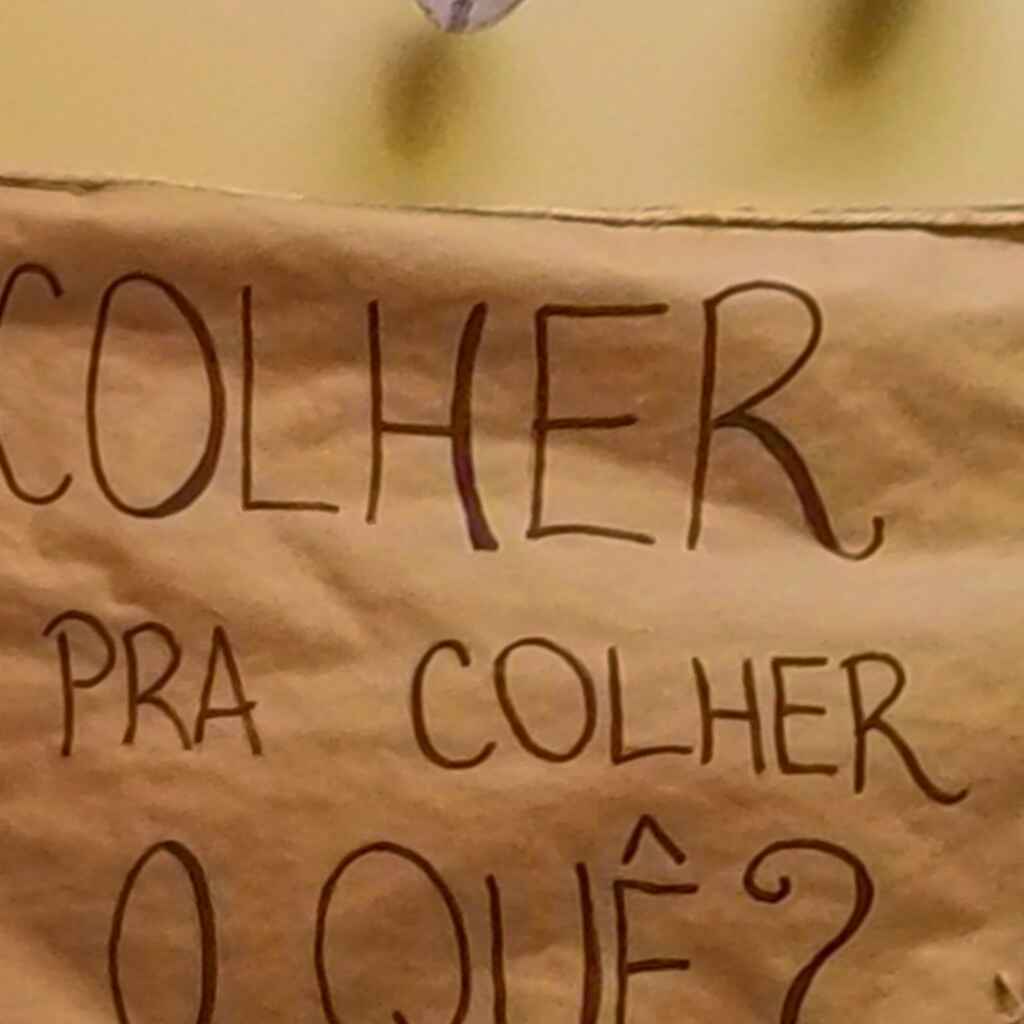 COLHER
PRA COLHER
O QUÊ?